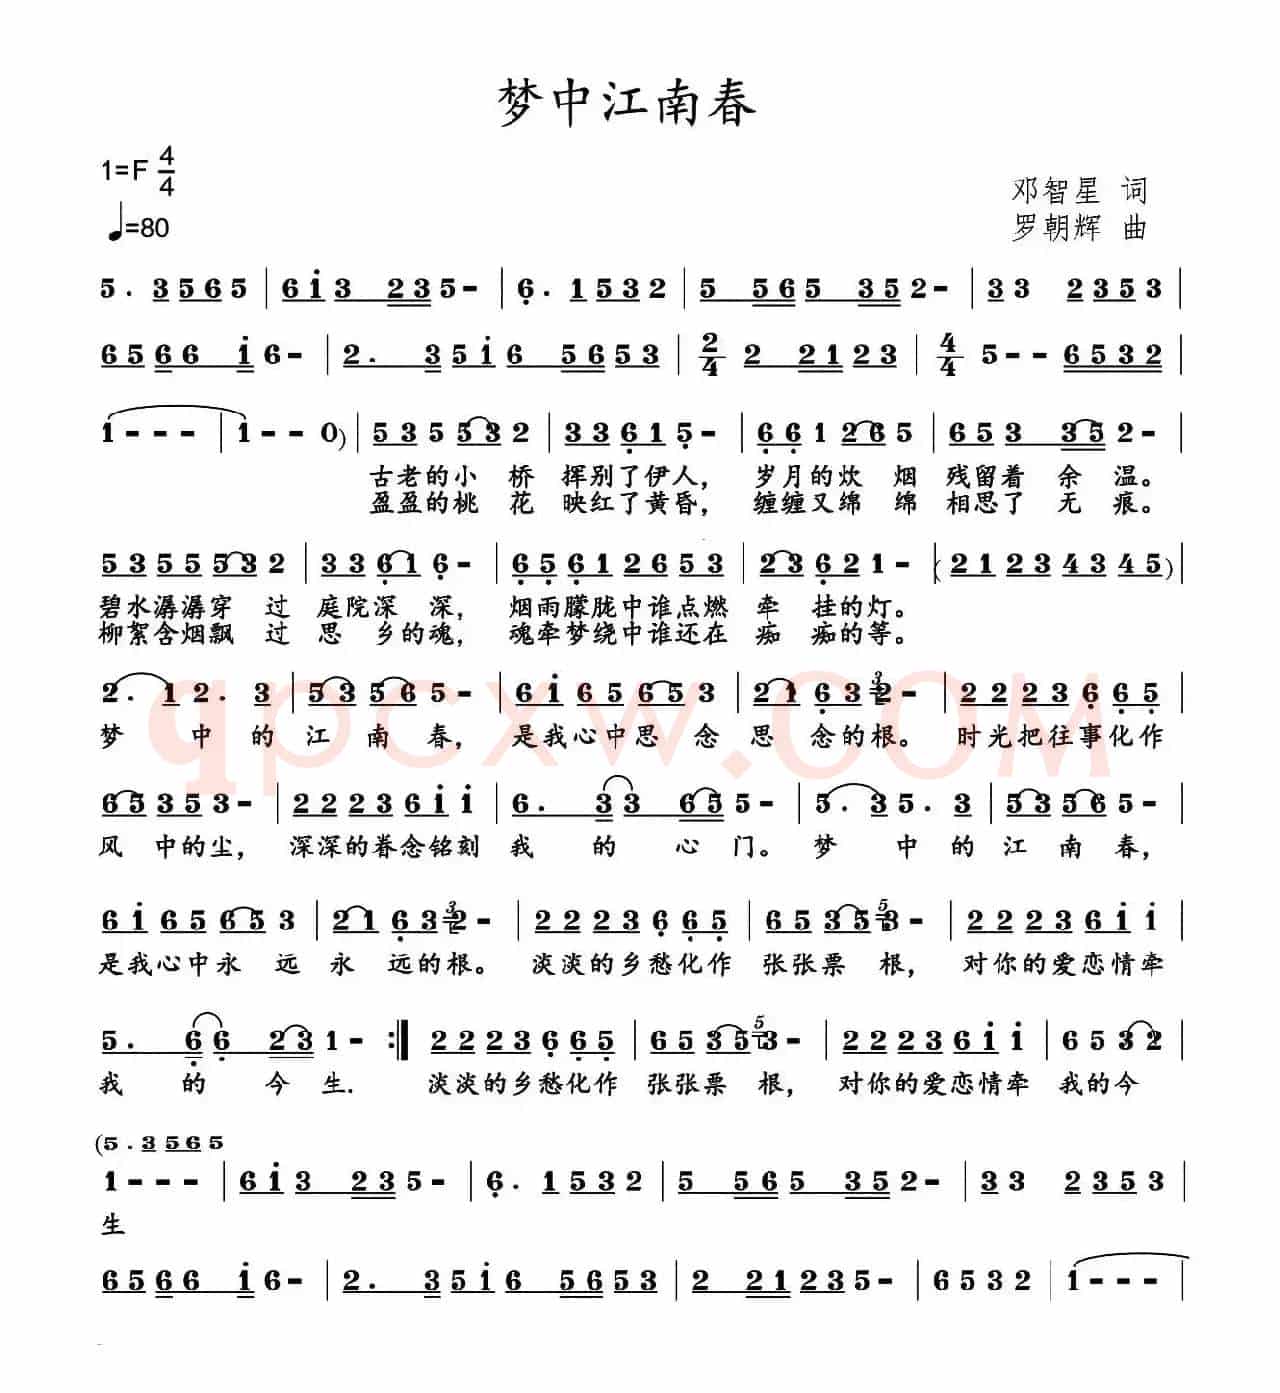 梦中江南春
1=F 4/4
♩=80
邓智星 词
罗朝辉 曲
5 . 3 5 6 5 | 6 i 3 2 3 5 - | 6 . 1 5 3 2 | 5 5 6 5 3 5 2 - | 3 3 2 3 5 3 |
6 5 6 6 i 6 - | 2 . 3 5 i 6 5 6 5 3 | 2/4 2 2 1 2 3 | 4/4 5 - - 6 5 3 2 |
1 - - - | 1 - - 0 ) | 5 3 5 5 3 2 | 3 3 6 1 5 - | 6 6 1 2 6 5 | 6 5 3 3 5 2 - |
古老的小 桥 挥别了伊人， 岁月的炊 烟 残留着 余 温。
盈盈的桃 花 映红了黄昏， 缠缠又绵 绵 相思了 无 痕。
5 3 5 5 5 3 2 | 3 3 6 1 6 - | 6 5 6 1 2 6 5 3 | 2 3 6 2 1 - | ( 2 1 2 3 4 3 4 5 ) |
碧水潺潺穿 过 庭院深 深， 烟雨朦胧中谁点燃 牵 挂的灯。
柳絮含烟飘 过 思 乡的魂， 魂牵梦绕中谁还在 痴 痴的等。
2 . 1 2 . 3 | 5 3 5 6 5 - | 6 i 6 5 6 5 3 | 2 1 6 3 3 2 - | 2 2 2 3 6 6 5 |
梦 中 的 江 南 春， 是我心中思 念 思 念的根。 时光把往事化作
6 5 3 5 3 - | 2 2 2 3 6 i i | 6 . 3 3 6 5 5 - | 5 . 3 5 . 3 | 5 3 5 6 5 - |
风 中的尘， 深深的眷念铭刻 我 的 心 门。 梦 中 的 江 南 春，
6 i 6 5 6 5 3 | 2 1 6 3 3 2 - | 2 2 2 3 6 6 5 | 6 5 3 5 5 3 - | 2 2 2 3 6 i i |
是我心中永 远 永 远的根。 淡淡的乡愁化作 张张票 根， 对你的爱恋情牵
5 . 6 6 2 3 1 - :| 2 2 2 3 6 6 5 | 6 5 3 5 5 3 - | 2 2 2 3 6 i i | 6 5 3 2 |
我 的 今 生. 淡淡的乡愁化作 张张票 根， 对你的爱恋情牵 我的今
( 5 . 3 5 6 5
1 - - - | 6 i 3 2 3 5 - | 6 . 1 5 3 2 | 5 5 6 5 3 5 2 - | 3 3 2 3 5 3 |
生
6 5 6 6 i 6 - | 2 . 3 5 i 6 5 6 5 3 | 2 2 1 2 3 5 - | 6 5 3 2 | 1 - - - |
qpcxw.COM